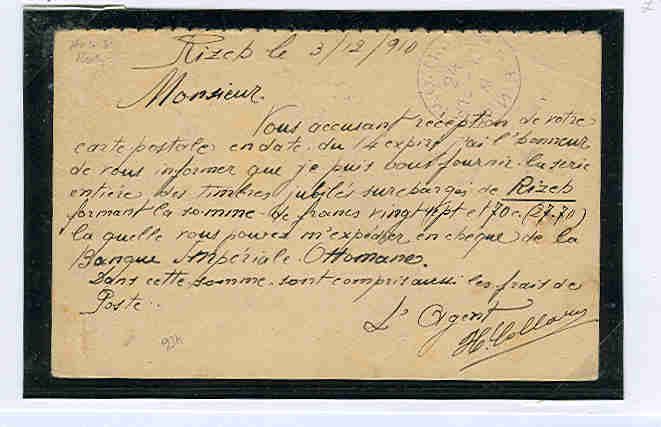 Rizeh le 3/12/910
Monsieur
Vous accusant réception de votre
carte postale en date du 14 expiré j'ai l'honneur
de vous informer que je puis vous fournir la serie
entière des timbres jubilés surchargés de Rizeh
formant la somme de francs vingt sept et 70 c. (27.70)
la quelle vous pouvez m'expédier en chèque de la
Banque Impériale Ottomane.
Dans cette somme sont compris aussi les frais de
Poste.
L'Agent
924